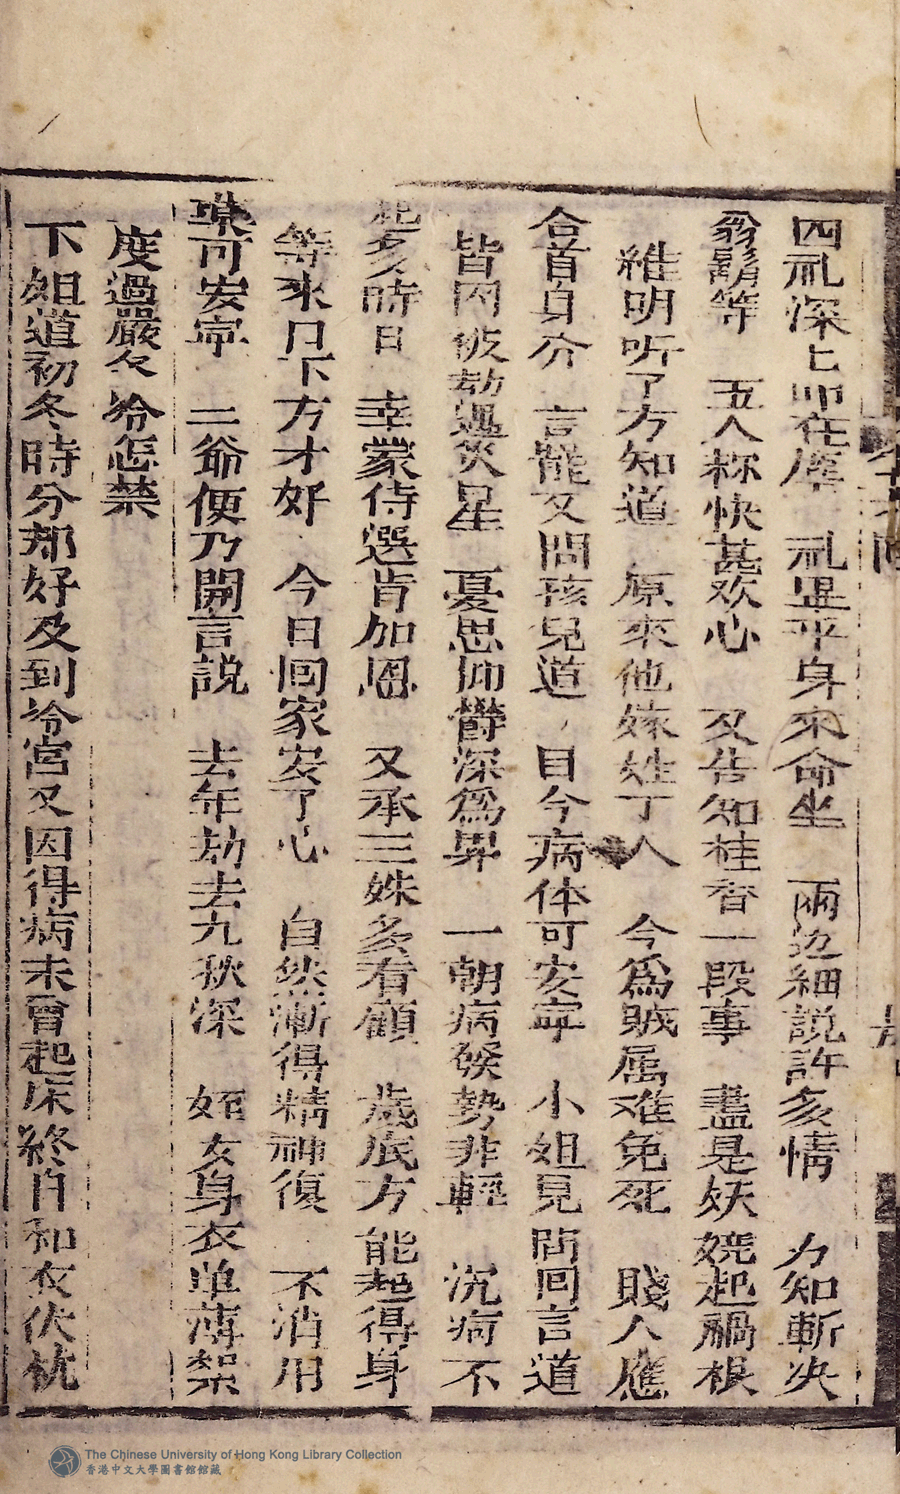 四礼深深叩在席 礼畢平身來命坐 兩边細説許多情 方知斬决
翁鬍等 五人称快甚欢心 又告知桂香一段事 盡是妖嬈起禍根
維明听了方知道 原來他嫁姓丁人 今為賊属难免死 賤人應
合首身分 言罷又問孩兒道 目今病体可安寧 小姐見問回言道
皆因被劫遇災星 憂思仰欝深為畢 一朝病發勢非輕 沉疴不
起多時日 幸蒙侍選肯加恩 又承三姝多看顧 歲底方能起得身
等來日下方才好 今日回家安了心 自然漸得精神復 不消用
藥可安寧 二爺便乃開言説 去年劫去九秋深 姪女身衣单薄絮
度過嚴冬冷怎禁
下姐道初冬時分都好及到冷宮又因得病未曾起床終日和衣伏枕
The Chinese University of Hong Kong Library Collection
香港中文大學圖書館館藏